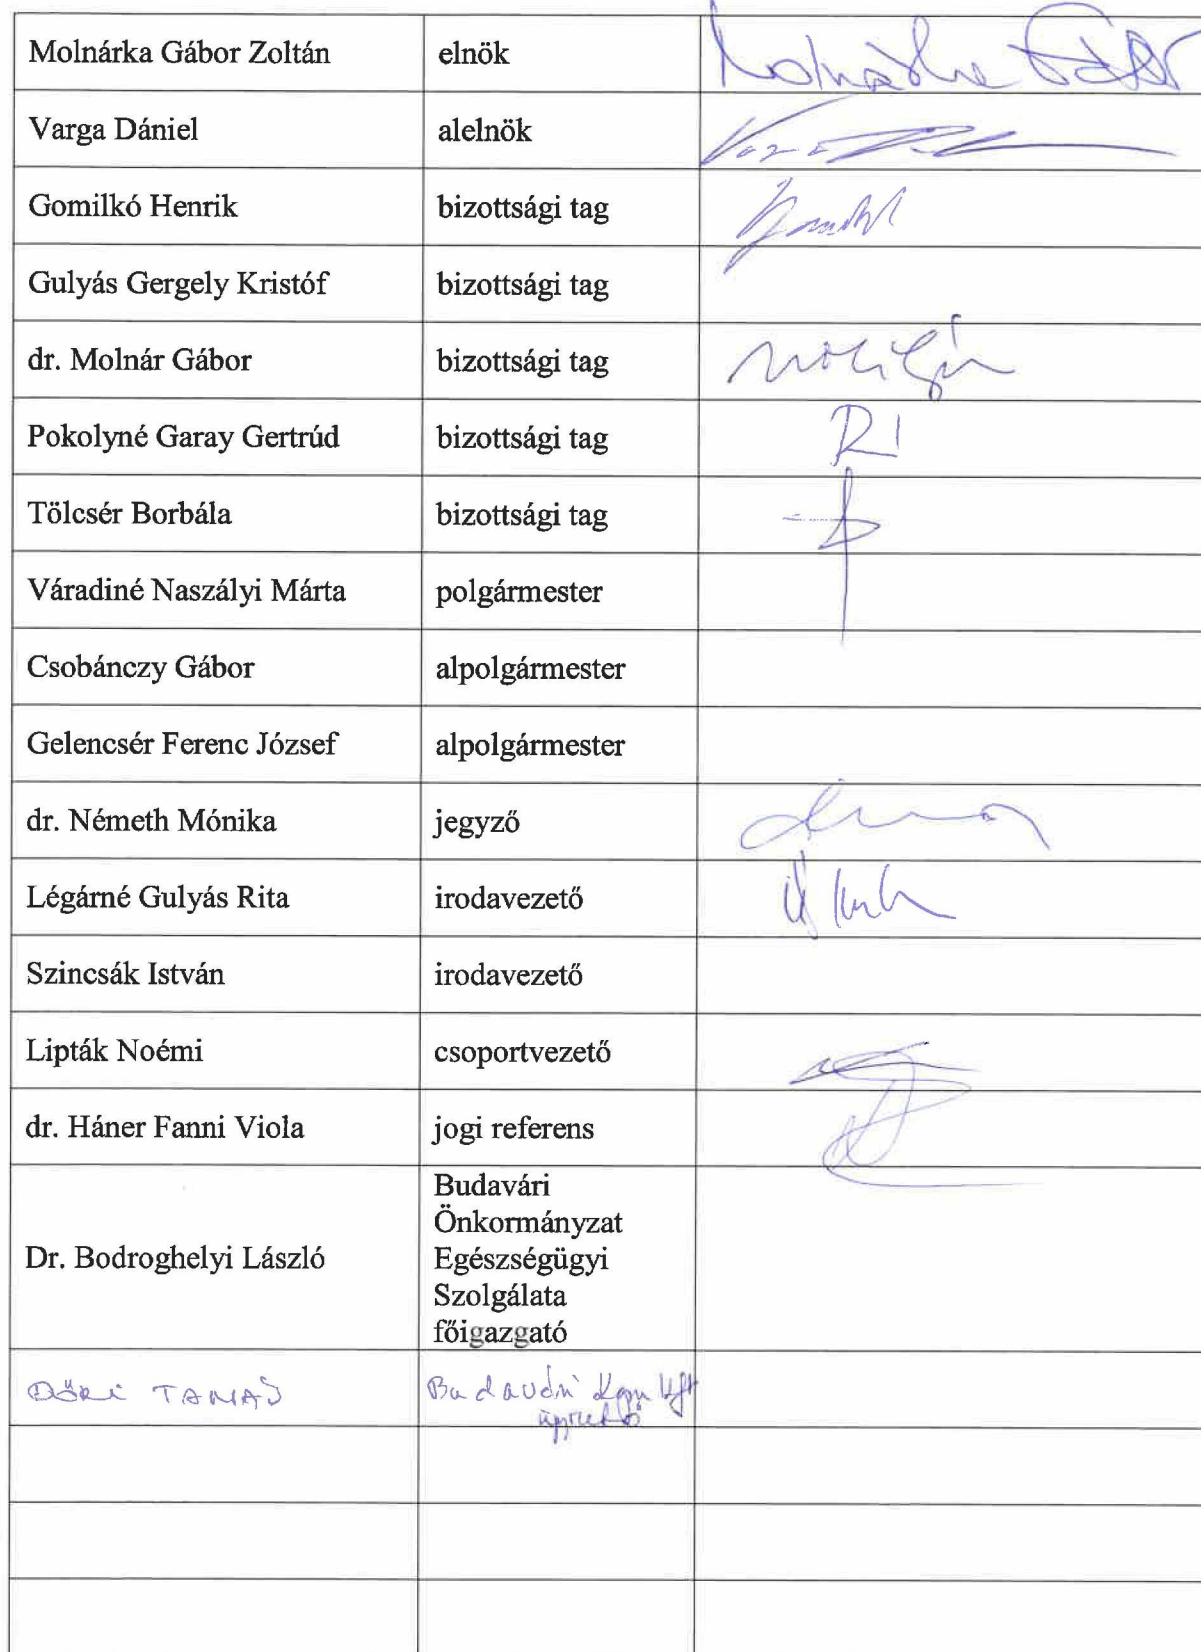 Molnárka Gábor Zoltán elnök Molnárka Gábor
Varga Dániel alelnök
Gomilkó Henrik bizottsági tag
Gulyás Gergely Kristóf bizottsági tag
dr. Molnár Gábor bizottsági tag
Pokolyné Garay Gertrúd bizottsági tag
Tölcsér Borbála bizottsági tag
Váradiné Naszályi Márta polgármester
Csobánczy Gábor alpolgármester
Gelencsér Ferenc József alpolgármester
dr. Németh Mónika jegyző
Légárné Gulyás Rita irodavezető
Szincsák István irodavezető
Lipták Noémi csoportvezető
dr. Háner Fanni Viola jogi referens
Budavári
Önkormányzat
Dr. Bodroghelyi László Egészségügyi
Szolgálata
főigazgató
DŐRI TAMÁS Budavári Kft